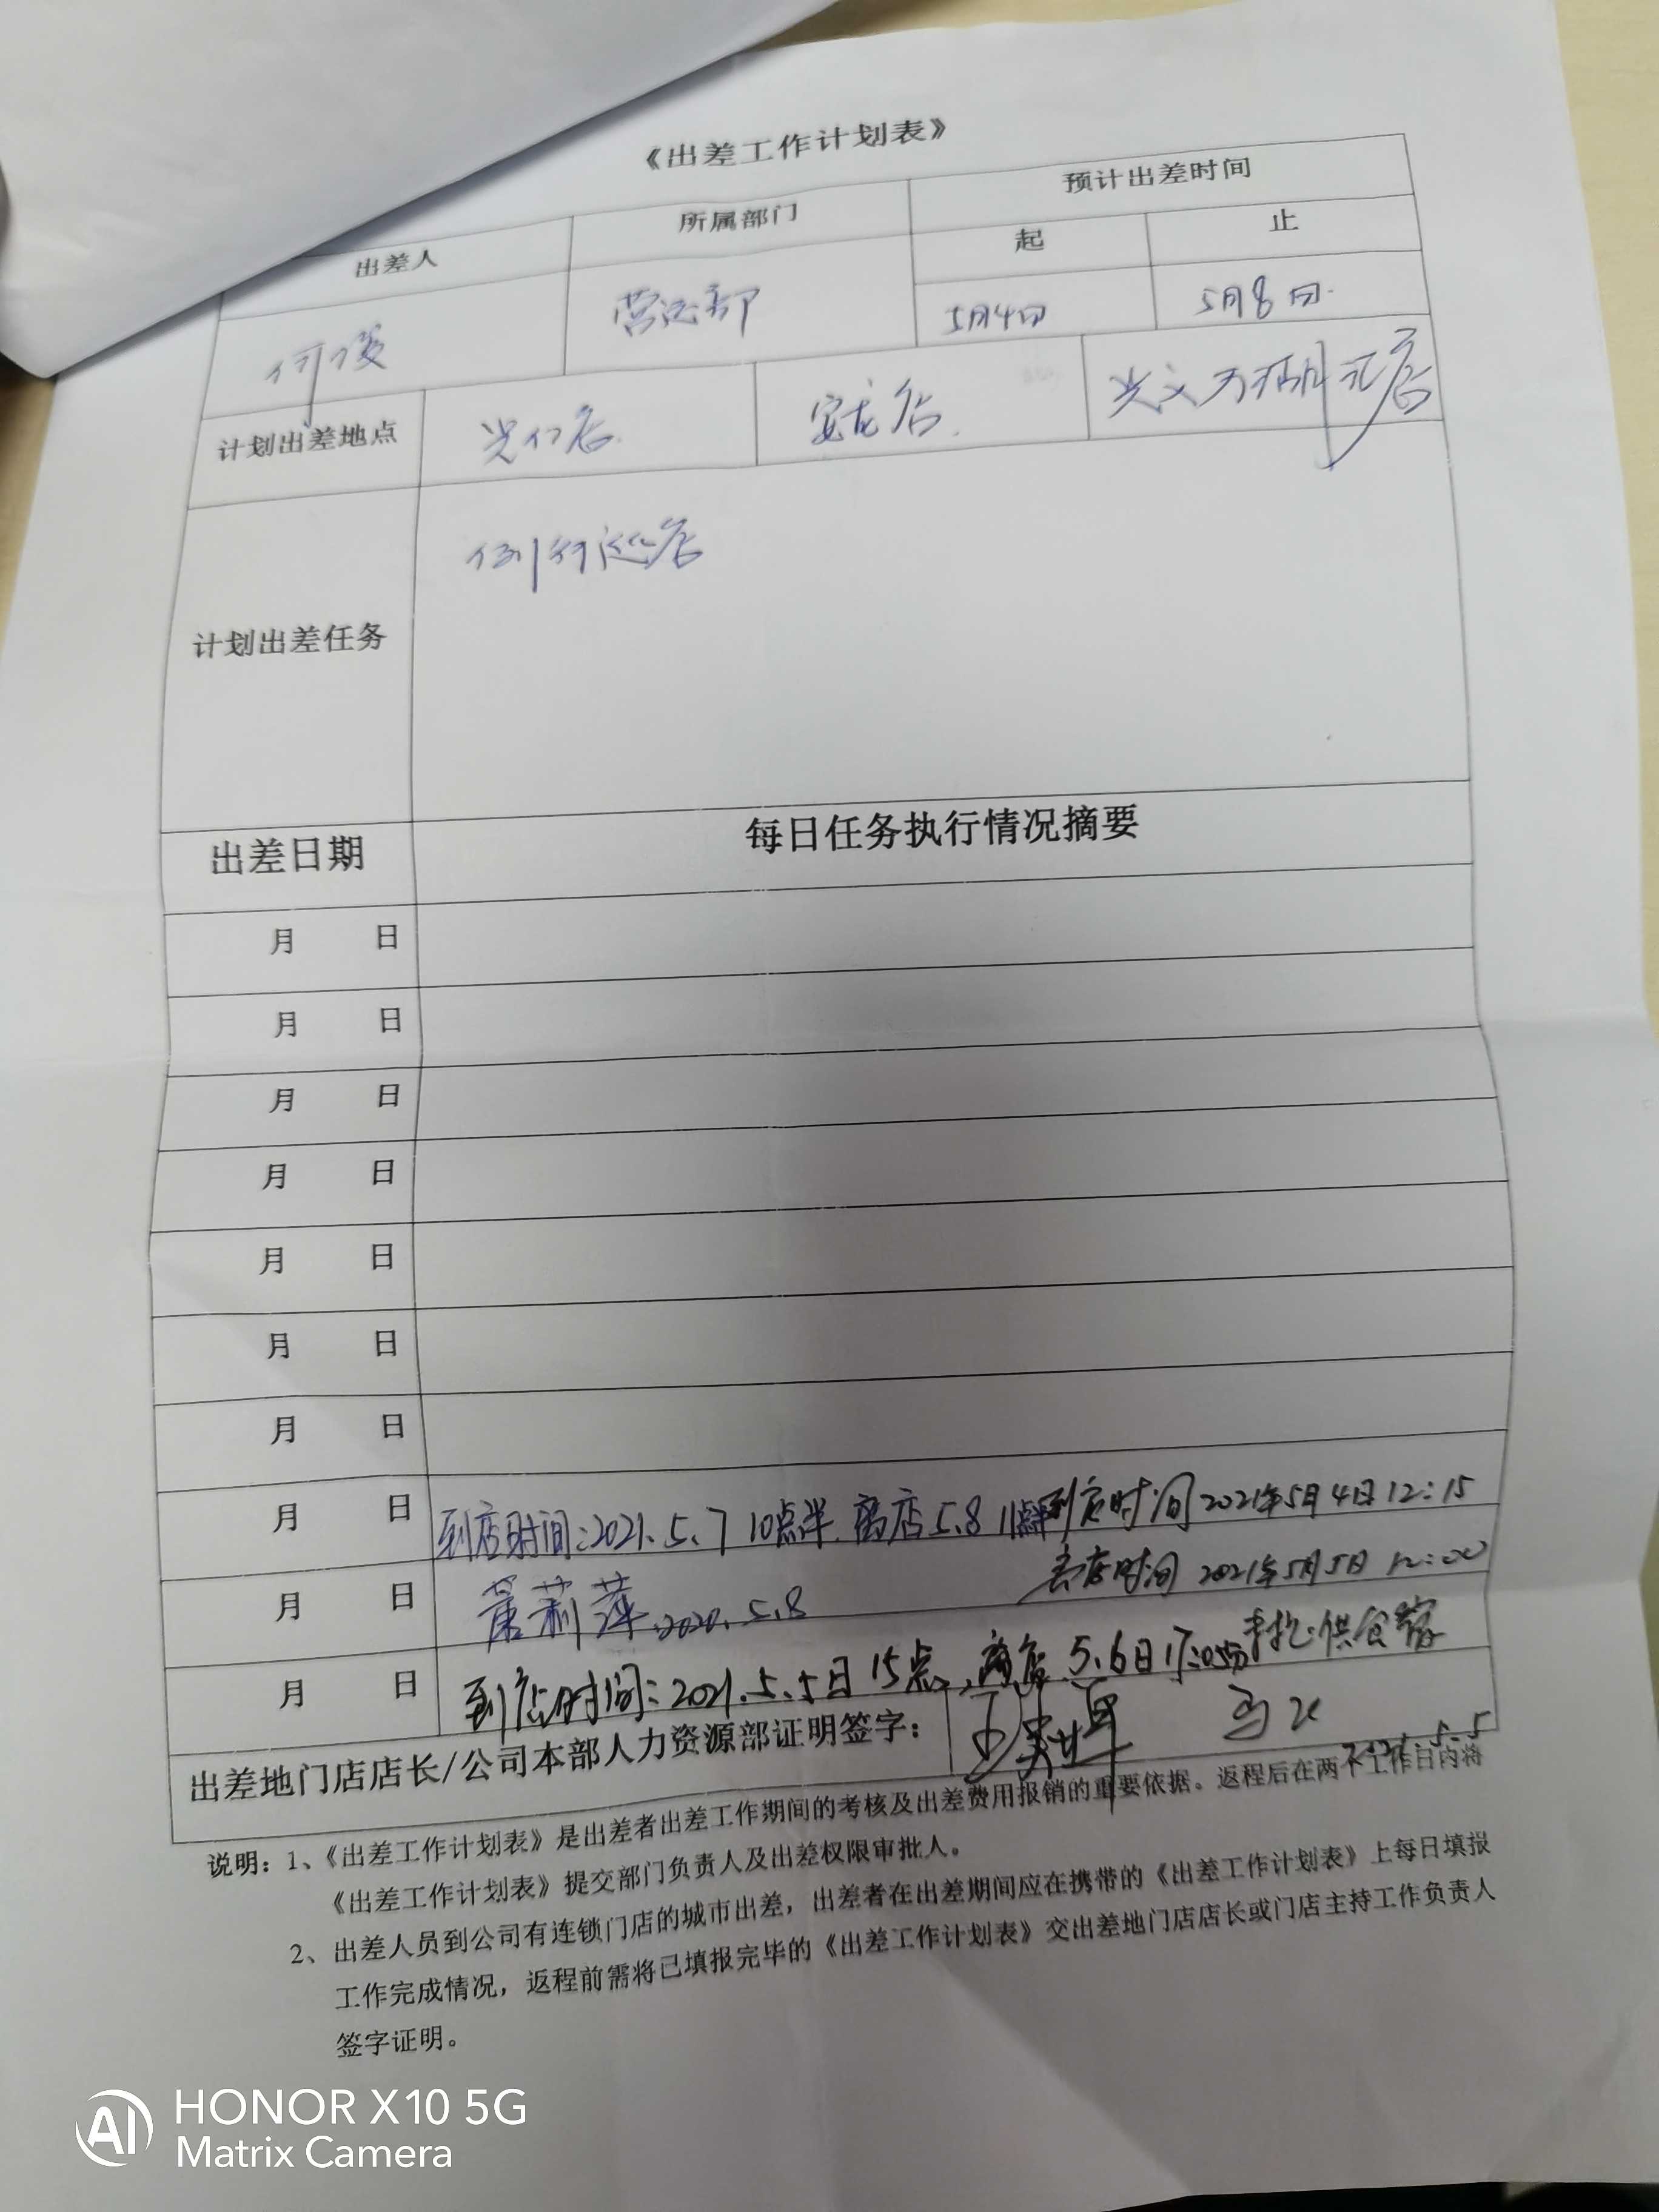 《出差工作计划表》
出差人 所属部门 预计出差时间
起 止
何俊 营运部 5月4日 5月8日.
计划出差地点 兴仁店. 安龙店. 兴义万 店
计划出差任务 例行巡店
出差日期 每日任务执行情况摘要
月 日
月 日
月 日
月 日
月 日
月 日
月 日
月 日 到店时间:2021.5.7 10点半.离店5.8 11点半 到店时间2021年5月4日12:15
离店时间 2021年5月5日 12:00
月 日 莉萍.2020.5.8
月 日 到店时间:2021.5.5日15点,离店5.6日17:05
出差地门店店长/公司本部人力资源部证明签字:
5.5
说明:1、《出差工作计划表》是出差者出差工作期间的考核及出差费用报销的重要依据。返程后在两个工作日内将
《出差工作计划表》提交部门负责人及出差权限审批人。
2、出差人员到公司有连锁门店的城市出差,出差者在出差期间应在携带的《出差工作计划表》上每日填报
工作完成情况,返程前需将已填报完毕的《出差工作计划表》交出差地门店店长或门店主持工作负责人
签字证明。
AI HONOR X10 5G
Matrix Camera